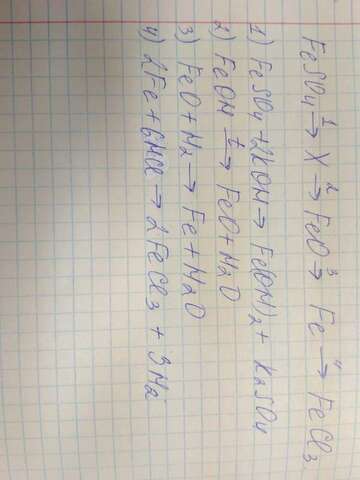 FeSO4 1→ X 2→ FeO 3→ Fe 4→ FeCl3
1) FeSO4 + 2KOH → Fe(OH)2 + K2SO4
2) FeOH t→ FeO + H2O
3) FeO + H2 → Fe + H2O
4) 2Fe + 6HCl → 2FeCl3 + 3H2